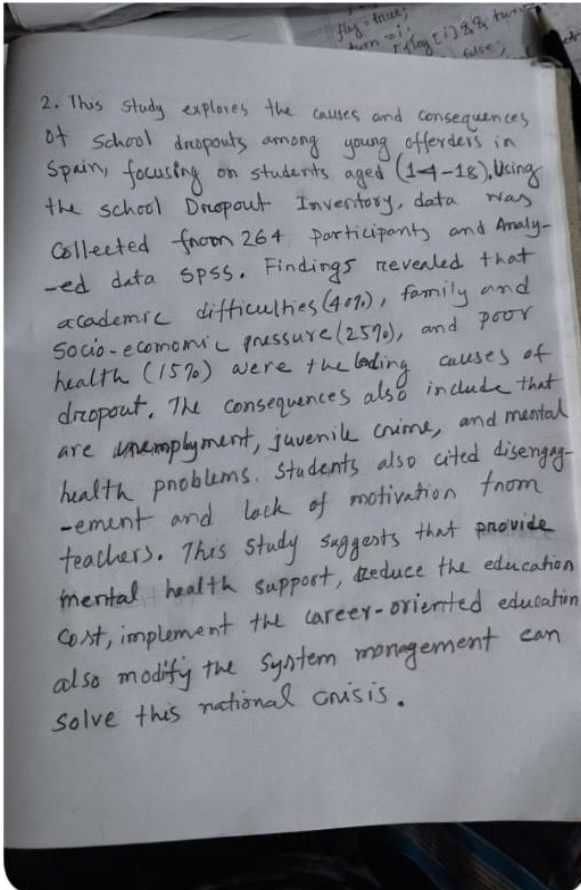 flag = true;
turn = i;
flag [i] && turn
false;
2. This study explores the causes and consequences
of school dropouts among young offerders in
Spain, focusing on students aged (14-18). Using
the school Dropout Inventory, data was
Collected from 264 participants and Analy-
-ed data SPSS. Findings revealed that
academic difficulties (40%), family and
Socio-ecomomic pressure (25%), and poor
health (15%) were the leading causes of
dropout. The consequences also include that
are unemplyment, juvenile crime, and mental
health problems. Students also cited disengag-
-ement and lack of motivation from
teachers. This study suggests that provide
mental health support, reduce the education
cost, implement the career-oriented education
also modify the system management can
solve this national crisis.